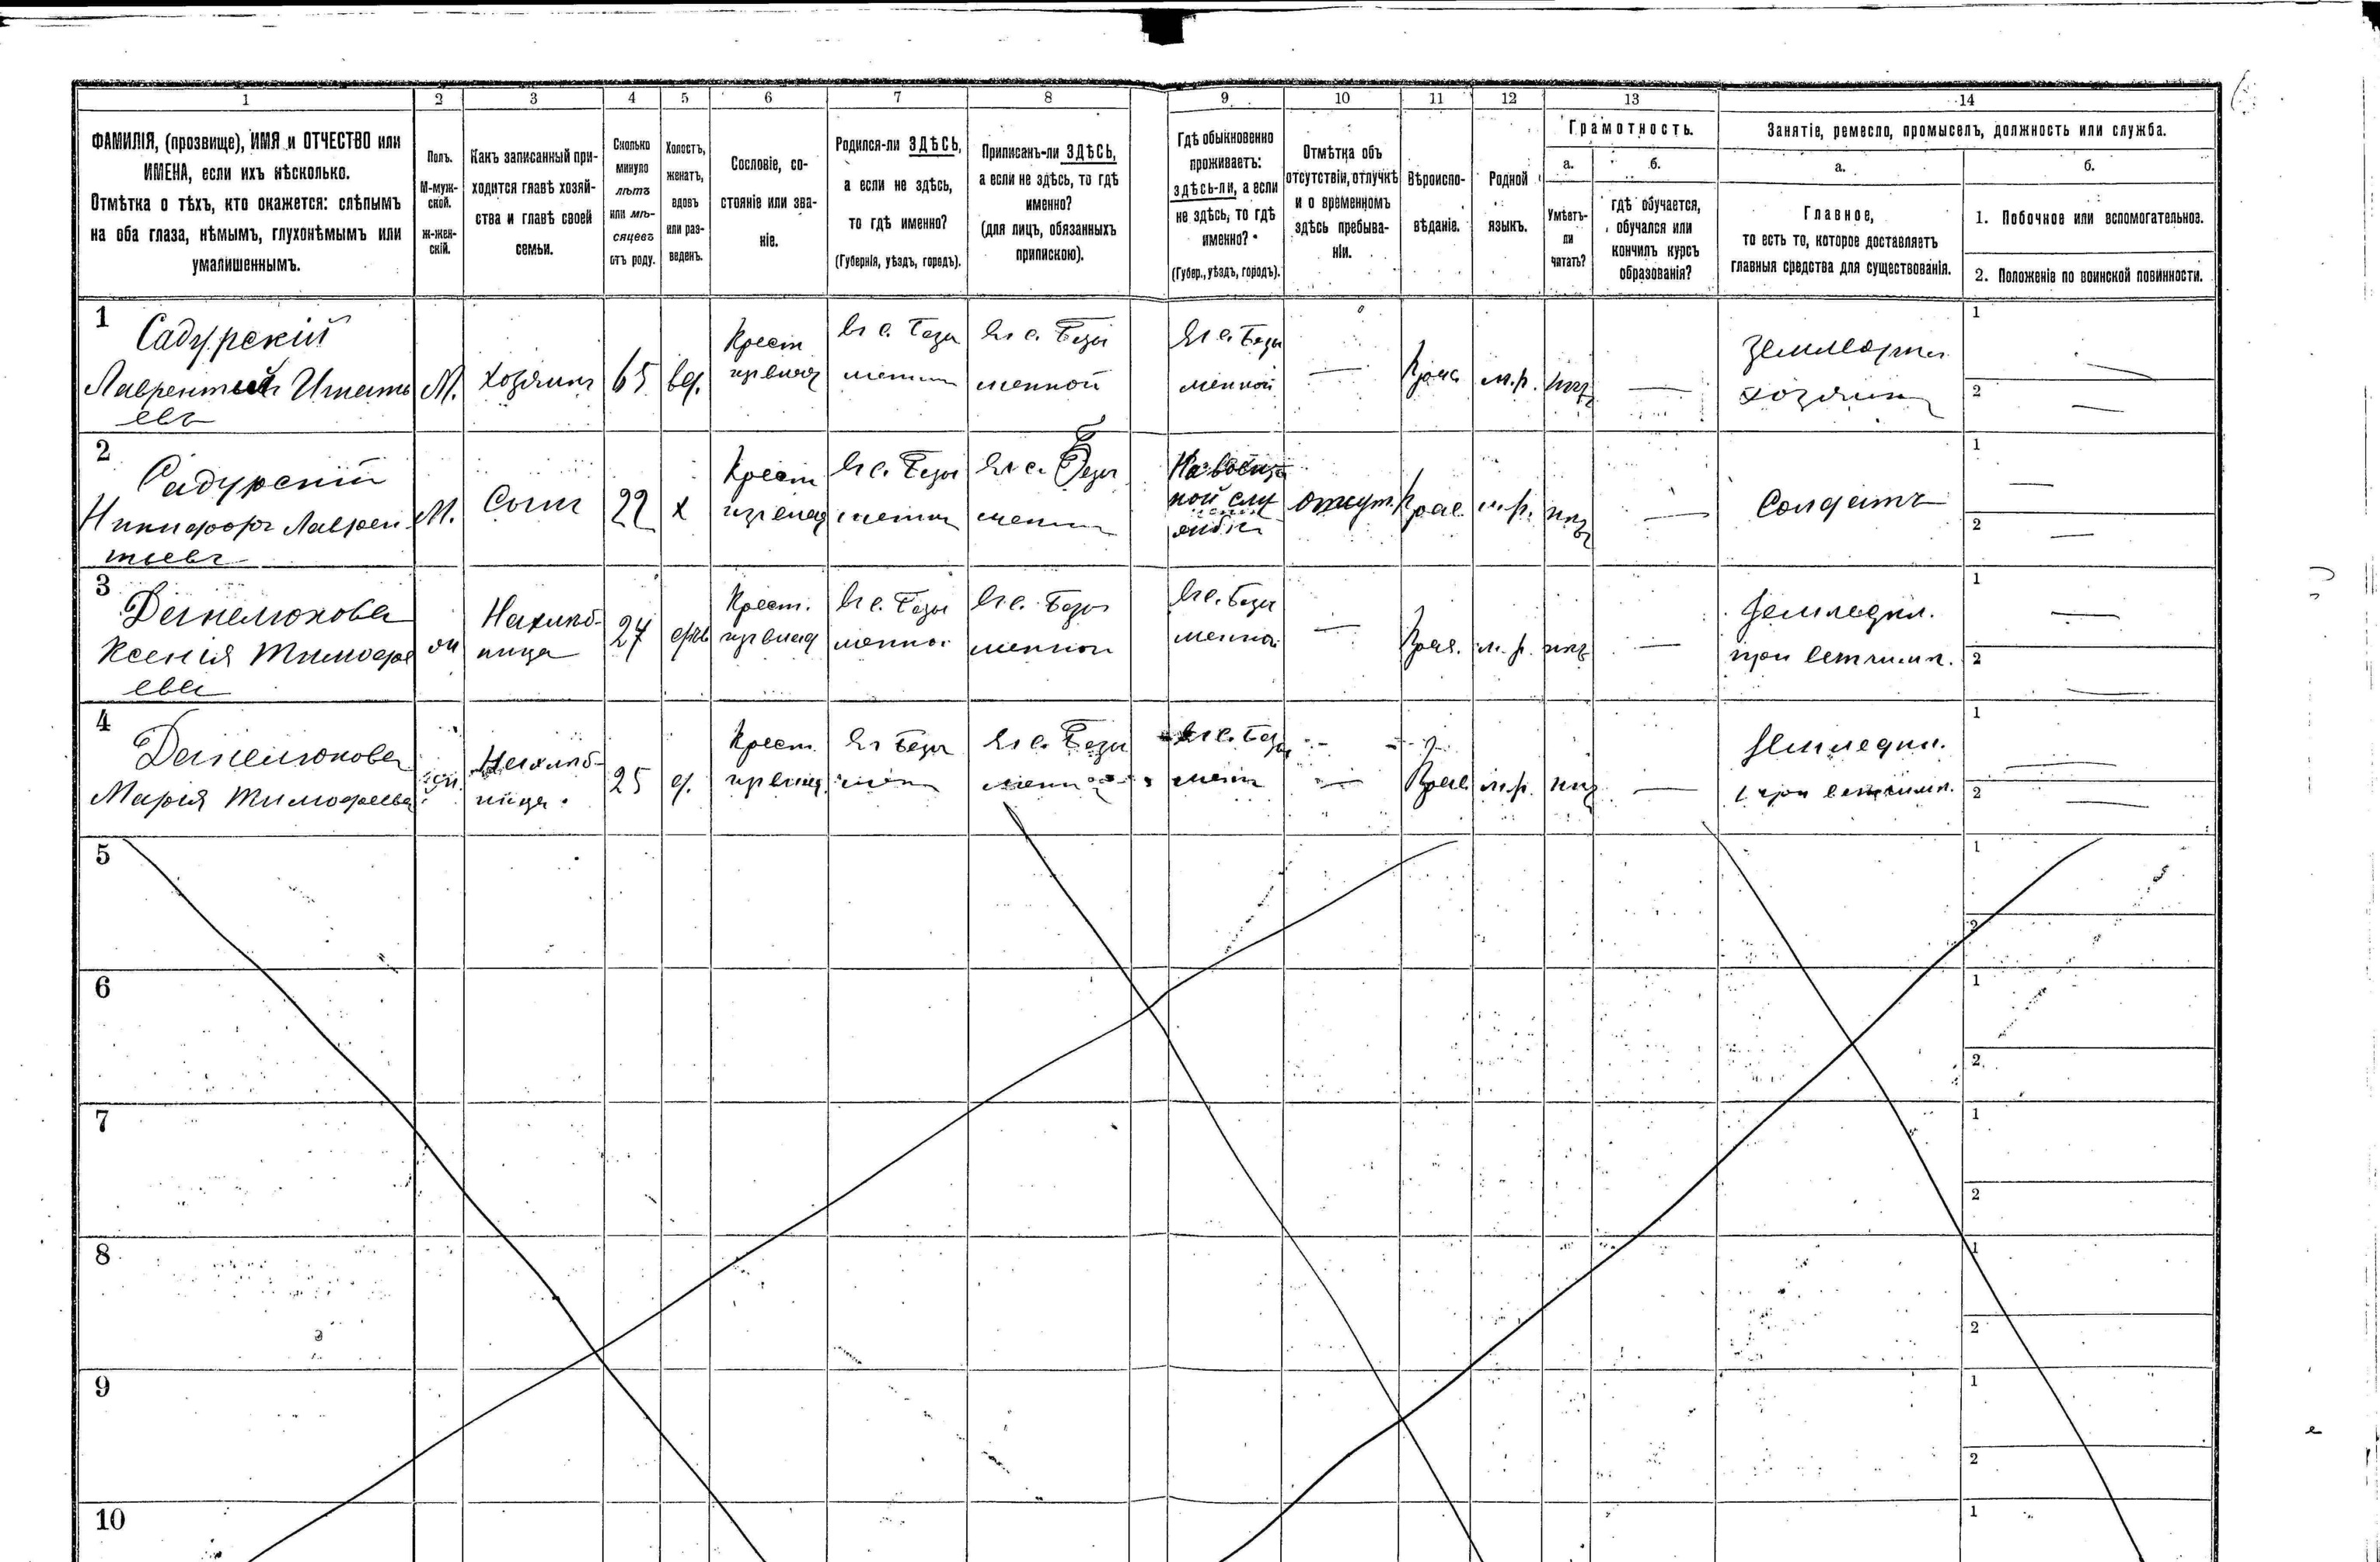 1 2 3 4 5 6 7 8 9 10 11 12 13 14
ФАМИЛІЯ, (прозвище), ИМЯ и ОТЧЕСТВО или
ИМЕНА, если ихъ нѣсколько.
Отмѣтка о тѣхъ, кто окажется: слѣпымъ
на оба глаза, нѣмымъ, глухонѣмымъ или
умалишеннымъ.
Полъ.
М-муж-
ской.
ж-жен-
скій.
Какъ записанный при-
ходится главѣ хозяй-
ства и главѣ своей
семьи.
Сколько
минуло
лѣтъ
или мѣ-
сяцевъ
отъ роду.
Холостъ,
женатъ,
вдовъ
или раз-
веденъ.
Сословіе, со-
стояніе или зва-
ніе.
Родился-ли ЗДѢСЬ,
а если не здѣсь,
то гдѣ именно?
(Губернія, уѣздъ, городъ).
Приписанъ-ли ЗДѢСЬ,
а если не здѣсь, то гдѣ
именно?
(для лицъ, обязанныхъ
припискою).
Гдѣ обыкновенно
проживаетъ:
здѣсь-ли, а если
не здѣсь, то гдѣ
именно?
(Губер., уѣздъ, городъ).
Отмѣтка объ
отсутствіи, отлучкѣ
и о временномъ
здѣсь пребыва-
ніи.
Вѣроиспо-
вѣданіе.
Родной
языкъ.
Грамотность.
а.
Умѣетъ-
ли
читать?
б.
гдѣ обучается,
обучался или
кончилъ курсъ
образованія?
Занятіе, ремесло, промыселъ, должность или служба.
а.
Главное,
то есть то, которое доставляетъ
главныя средства для существованія.
б.
1. Побочное или вспомогательное.
2. Положеніе по воинской повинности.
1
Садурскій
Лаврентій Игнать
евъ
М.
хозяинъ
65
вд.
Крест
въ с. Безы
менной
въ с. Безы
менной
въ с. Безы
менной
—
Прав
м.р.
нѣтъ
—
хозяинъ
1
2
2
Садурскій
Никифоръ Лаврен
тьевъ
М.
Сынъ
22
х
Крест
въ с. Безы
въ с. Безы
На воен
ной слу
жбѣ
отсут.
Прав.
м.р.
нѣтъ
—
Солдатъ
1
2
3
Данелюкова
Ксенія Тимофе
ева
ж
Нахлѣб-
ница
27
Крест.
въ с. Безы
менной
въ с. Безы
менной
въ с. Безы
менной
—
Прав.
м.р.
нѣтъ
—
Земледѣл.
1
2
4
Данелюкова
Марія Тимофеева
ж.
Нахлѣб-
ница.
25
д.
Крест.
въ Безы
въ с. Безы
въ с. Безы
—
Прав.
м.р.
нѣтъ
—
Земледѣл.
1
2
5
1
2
6
1
2
7
1
2
8
1
2
9
1
2
10
1